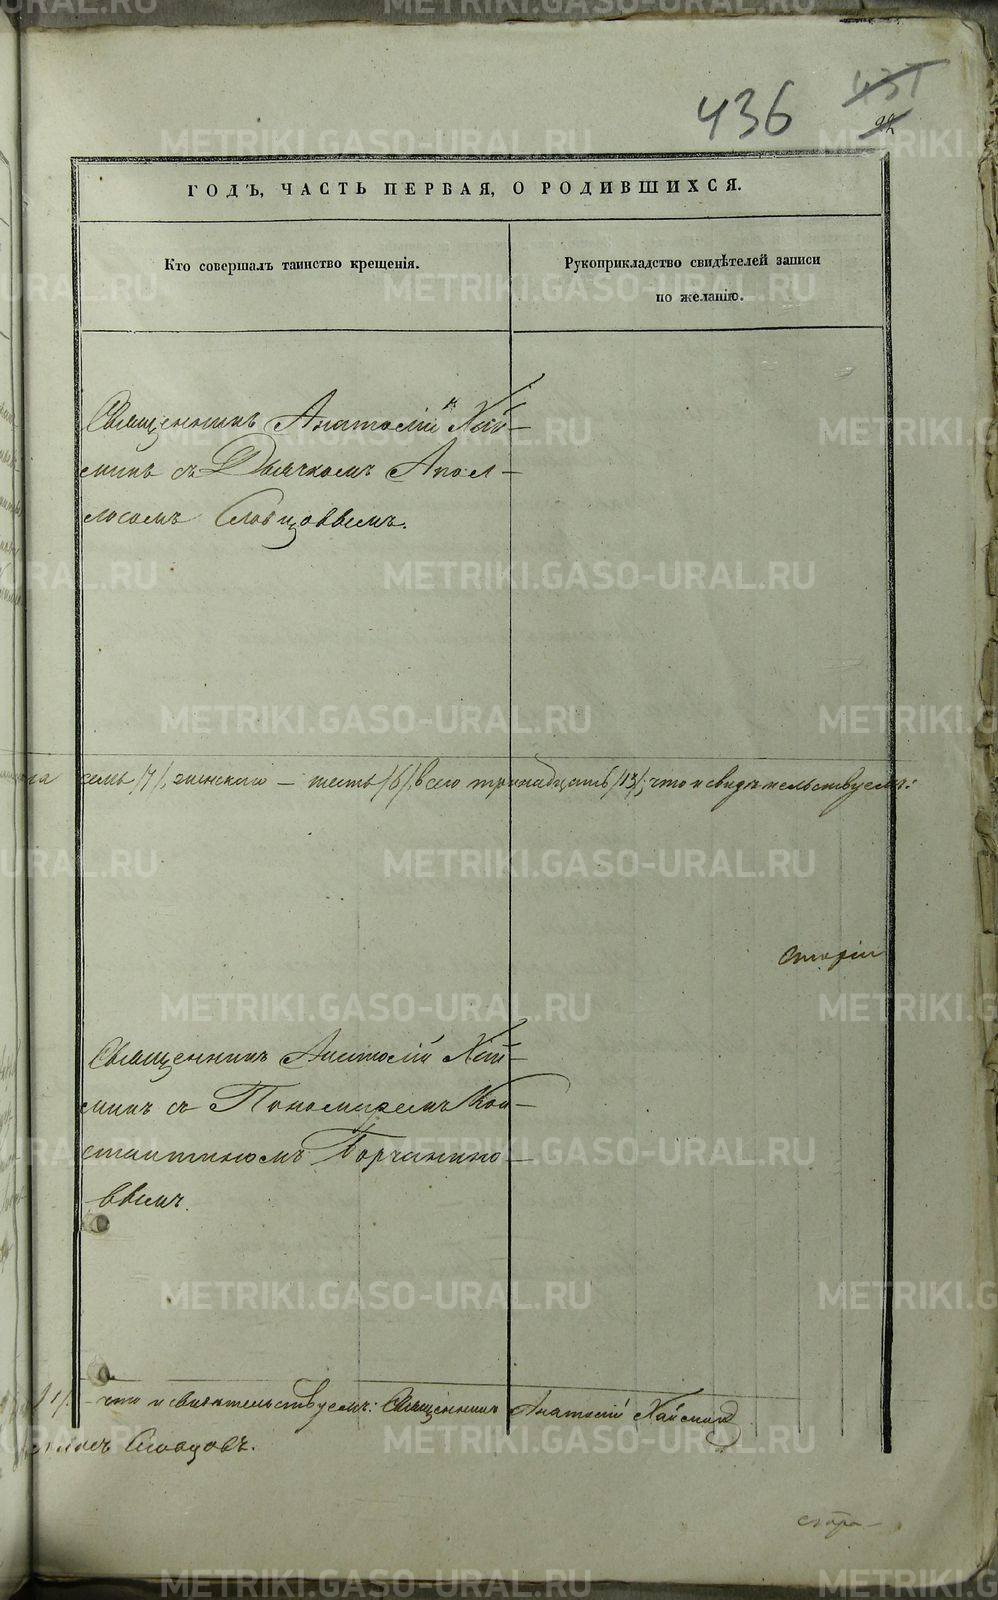 436 431
22
ГОДЪ, ЧАСТЬ ПЕРВАЯ, О РОДИВШИХСЯ.
Кто совершалъ таинство крещенія.
Рукоприкладство свидѣтелей записи
по желанію.
Священникъ Анатолій Хай-
минъ съ Дьячкомъ Апол-
лосомъ Словцовымъ.
семь /7/, женскаго – шесть /6/, всего тринадцать /13/, что и свидѣтельствуемъ:
Священникъ Анатолій Хай-
минъ съ Пономаремъ Кон-
стантиномъ Борчанино-
вымъ.
/1/. – что и свидѣтельствуемъ: Священникъ Анатолій Хайминъ
Словцовъ.
METRIKI.GASO-URAL.RU